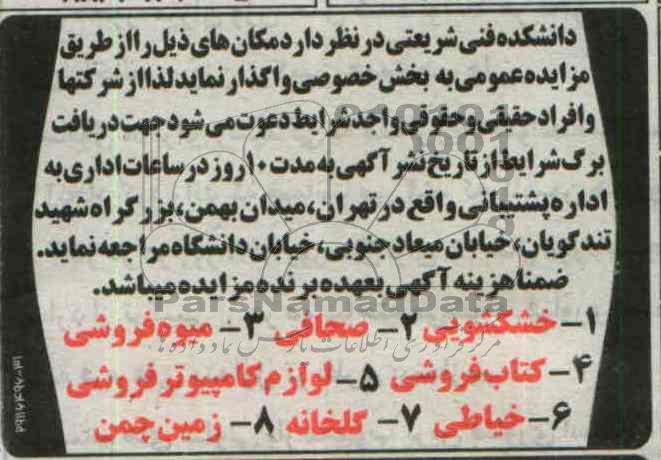 دانشکده فنی شریعتی در نظر دارد مکان های ذیل را از طریق
مزایده عمومی به بخش خصوصی واگذار نماید لذا از شرکتها
و افراد حقیقی و حقوقی واجد شرایط دعوت می شود جهت دریافت
برگ شرایط از تاریخ نشر آگهی به مدت ۱۰ روز در ساعات اداری به
اداره پشتیبانی واقع در تهران، میدان بهمن، بزرگراه شهید
تندگویان، خیابان میعاد جنوبی، خیابان دانشگاه مراجعه نماید.
ضمنا هزینه آگهی بعهده برنده مزایده میباشد.
ParsNamadData
۱- خشکشویی ۲- صحافی ۳- میوه فروشی
مرکز فرآوری اطلاعات پارس نماد داده ها
۴- کتاب فروشی ۵- لوازم کامپیوتر فروشی
۶- خیاطی ۷- گلخانه ۸- زمین چمن